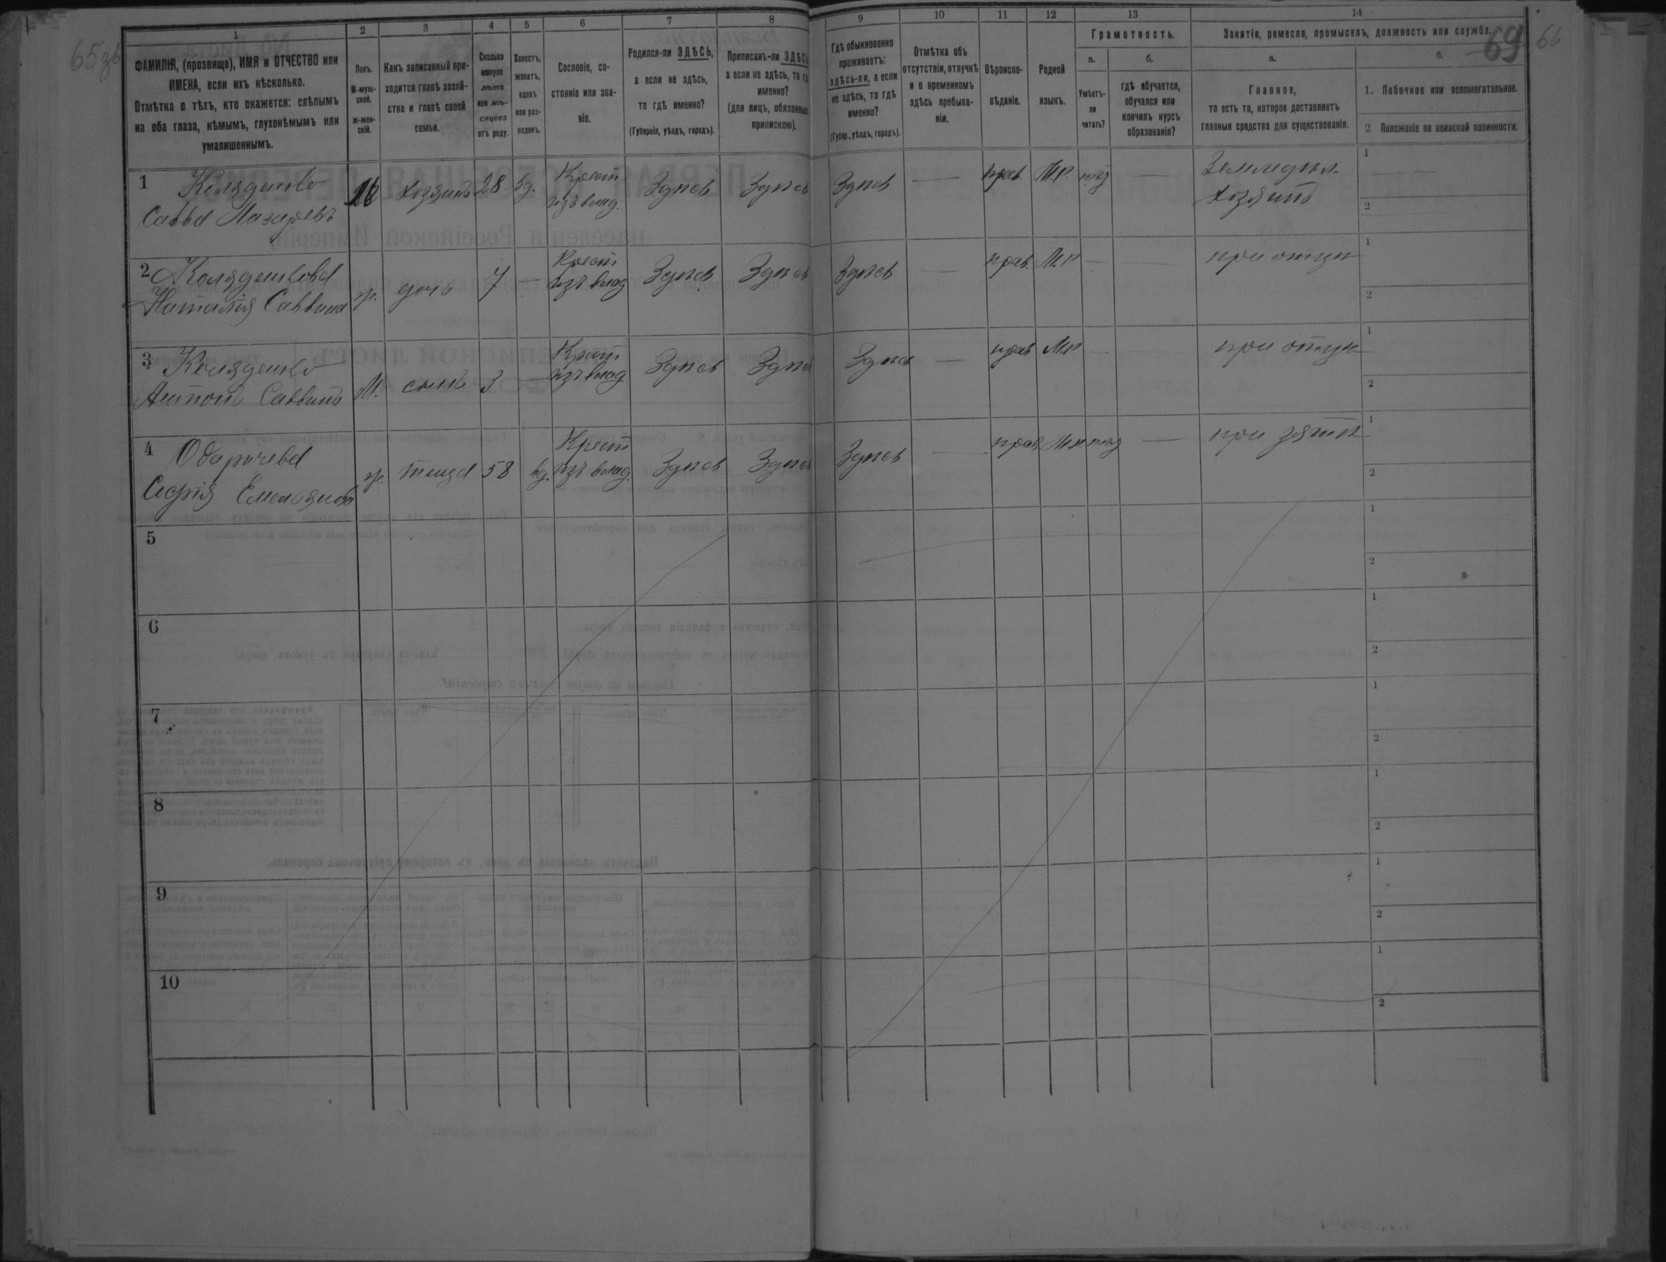 1 2 3 4 5 6 7 8 9 10 11 12 13 14
69
66
ФАМИЛІЯ, (прозвище), ИМЯ и ОТЧЕСТВО или
ИМЕНА, если ихъ нѣсколько.
Отмѣтка о тѣхъ, кто окажется: слѣпымъ
на оба глаза, нѣмымъ, глухонѣмымъ или
умалишеннымъ.
Полъ.
М-муж-
ской.
Ж-жен-
скій.
Какъ записанный при-
ходится главѣ хозяй-
ства и главѣ своей
семьи.
Сколько
минуло
лѣтъ
или мѣ-
сяцевъ
отъ роду.
Холостъ,
женатъ,
вдовъ
или раз-
веденъ.
Сословіе, со-
стояніе или зва-
ніе.
Родился-ли ЗДѢСЬ,
а если не здѣсь,
то гдѣ именно?
(Губернія, уѣздъ, городъ).
Приписанъ-ли ЗДѢСЬ,
а если не здѣсь, то гдѣ
именно?
(для лицъ, обязанныхъ
припискою).
Гдѣ обыкновенно
проживаетъ:
здѣсь-ли, а если
не здѣсь, то гдѣ
именно?
(Губер., уѣздъ, городъ).
Отмѣтка объ
отсутствіи, отлучкѣ
и о временномъ
здѣсь пребыва-
ніи.
Вѣроиспо-
вѣданіе.
Родной
языкъ.
Грамотность.
а.
Умѣетъ-
ли
читать?
б.
гдѣ обучается,
обучался или
кончилъ курсъ
образованія?
Занятіе, ремесло, промыселъ, должность или служба.
а.
Главное,
то есть то, которое доставляетъ
главныя средства для существованія.
б.
1. Побочное или вспомогательное.
2 Положеніе по воинской повинности.
1 Коляденко
Савва Назаревъ
хозяинъ 28 вд. Крест. изъ влад. Здѣсь Здѣсь Здѣсь — прав. М.Р. — Земледѣл. хозяинъ
1
2
2 Коляденкова
Наталія Саввина
ж. дочь 7 — Крест. изъ влад. Здѣсь Здѣсь Здѣсь — прав. М.Р. — — при отцѣ
1
2
3 Коляденко
Антонъ Саввинъ
М. сынъ 3 Крест. изъ влад. Здѣсь Здѣсь Здѣсь — прав. М.Р. — при отцѣ
1
2
4
ж. теща 58 вд. Крест. изъ влад. Здѣсь Здѣсь Здѣсь — прав. — при зятѣ
1
2
5
1
2
6
1
2
7
1
2
8
1
2
9
1
2
10
1
2